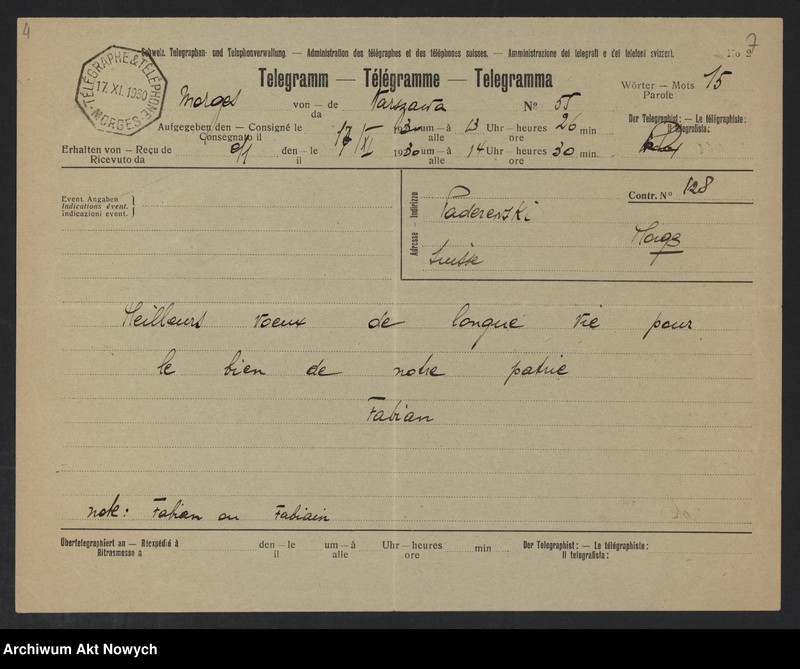 4
7
Schweiz. Telegraphen- und Telephonverwaltung. — Administration des télégraphes et des téléphones suisses. — Amministrazione dei telegrafi e dei telefoni svizzeri.
No 2
TÉLÉGRAPHE & TÉLÉPHONE
17.XI.1930
MORGES
Telegramm — Télégramme — Telegramma
Wörter — Mots 15
Parole
Morges von — de Warszawa Nº 55
da
Der Telegraphist: — Le télégraphiste:
Il telegrafista:
Aufgegeben den — Consigné le 17/XI 1930 um — à 13 Uhr — heures 26 min
Consegnato il alle ore
Erhalten von — Reçu de den — le 17/XI 1930 um — à 14 Uhr — heures 30 min.
Ricevuto da il alle ore
Event. Angaben
Indications évent.
Indicazioni event.
Adresse — Indirizzo
Contr. Nº 128
Paderewski
Morges
Suisse
Meilleurs voeux de longue vie pour
le bien de notre patrie
Fabian
note: Fabian ou Fabiain
Übertelegraphiert an — Réexpédié à den — le um — à Uhr — heures min Der Telegraphist: — Le télégraphiste:
Ritrasmesso a il alle ore Il telegrafista:
Archiwum Akt Nowych